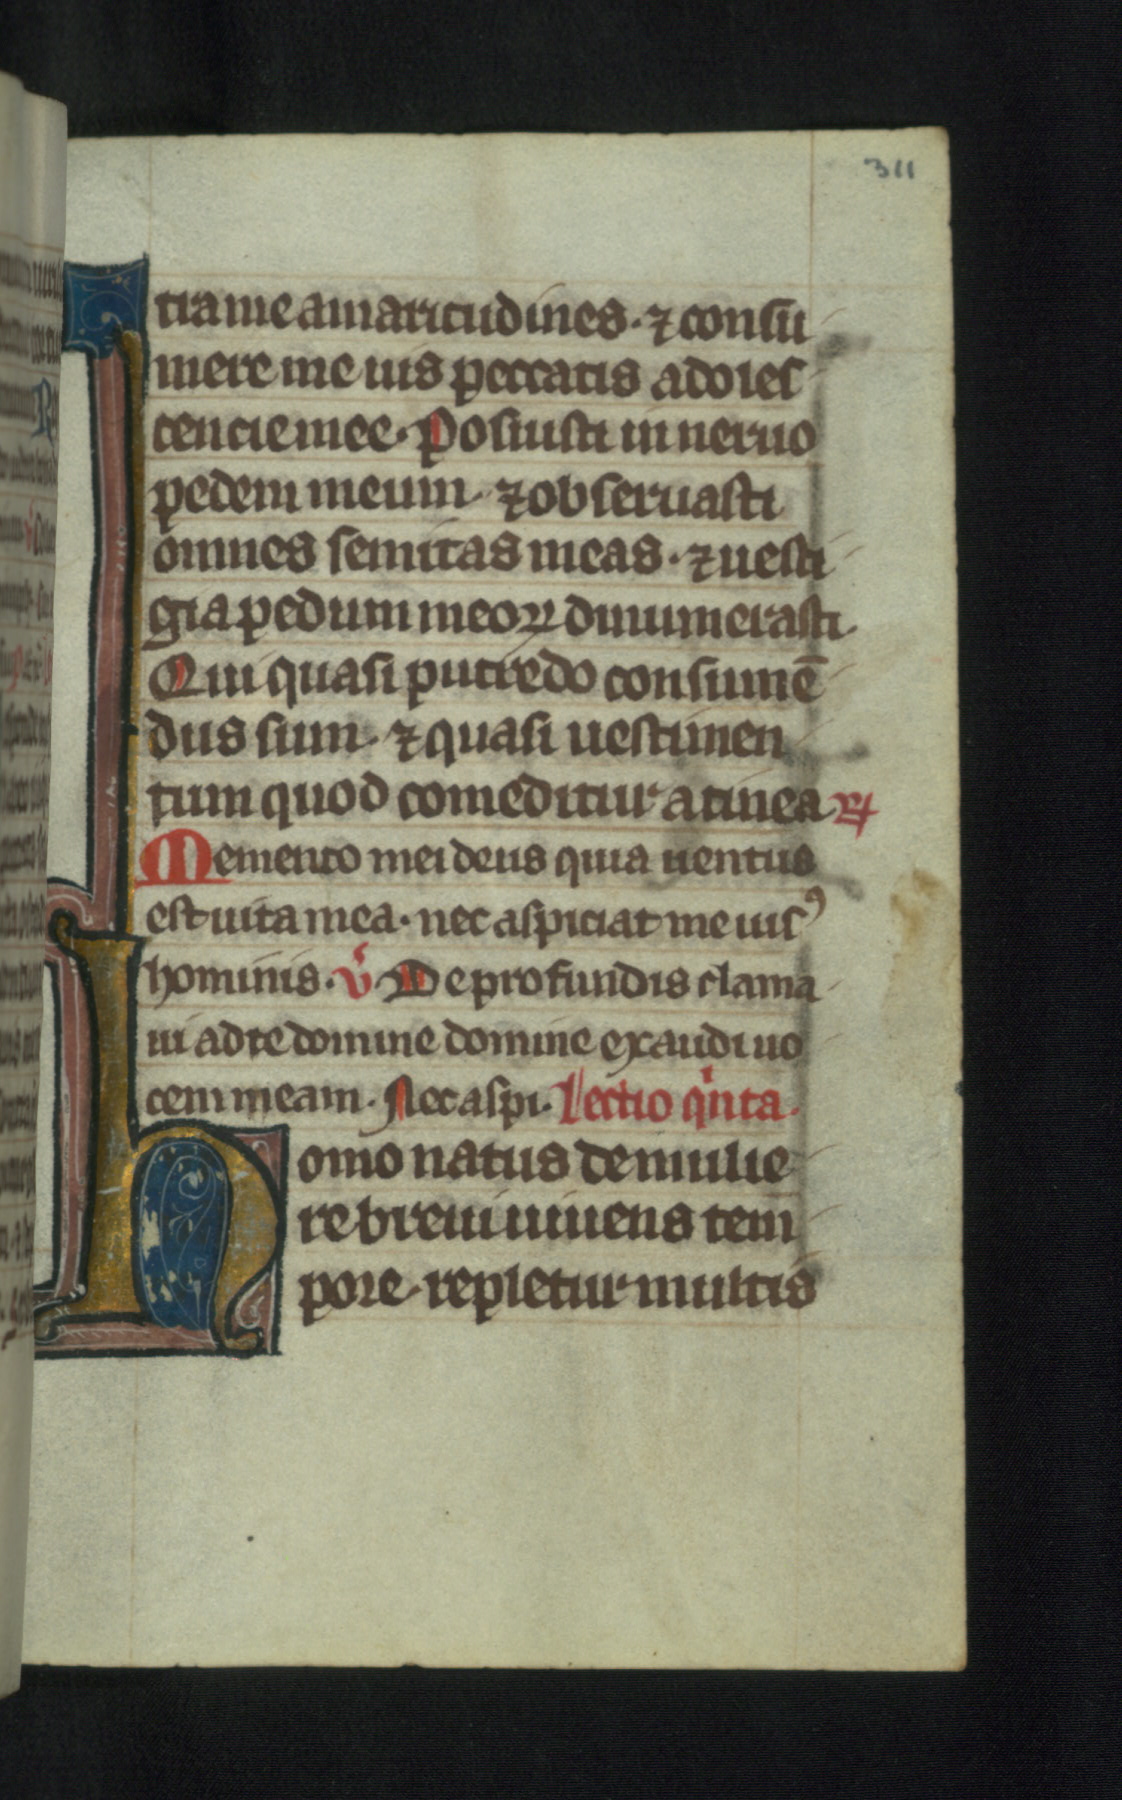 311
tra me amaritudines · ⁊ consu
mere me uis peccatis adoles
cencie mee · Posuisti in neruo
pedem meum · ⁊ obseruasti
omnes semitas meas · ⁊ uesti
gia pedum meoꝝ dinumerasti ·
Qui quasi putredo consumē
dus sum · ⁊ quasi uestimen
tum quod comeditur a tinea ℟
Memento mei deus quia uentus
est uita mea · nec aspiciat me uisꝰ
hominis · ℣ · De profundis clama
ui ad te domine domine exaudi uo
cem meam · Nec aspi · Lectio qͥnta ·
homo natus de mulie
re breui uiuens tem
pore · repletur multis